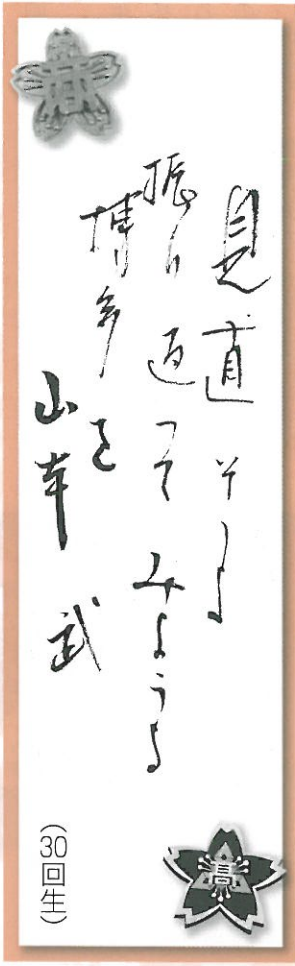 見直そうよ
振り返ってみようよ
博多を
山本 武
(30回生)
高